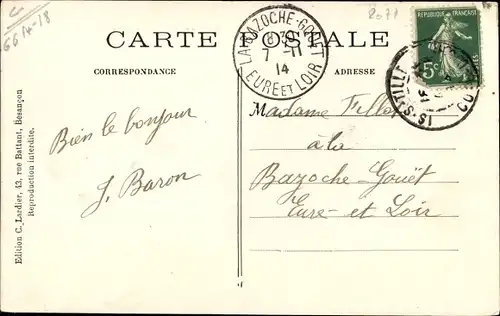 CARTE POSTALE
CORRESPONDANCE
ADRESSE
LA BAZOCHE-GOUET
7 -11
14
EURE ET LOIR
RÉPUBLIQUE FRANÇAISE
5c
Bien le bonjour
J. Baron
Madame
à la
Bazoche-Gouët
Eure-et Loir
Edition C. Lardier, 43, rue Battant, Besançon
Reproduction interdite.
2077